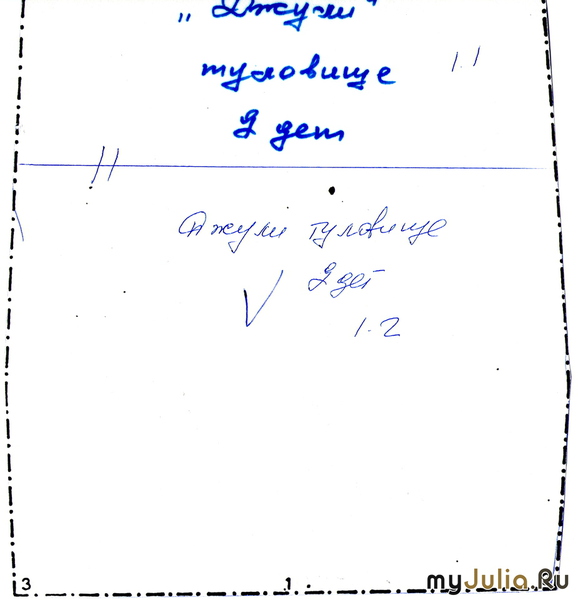 „Джули"
туловище
1.1
2 дет
Джули туловище
2 дет
1.2
3
1
myJulia.Ru